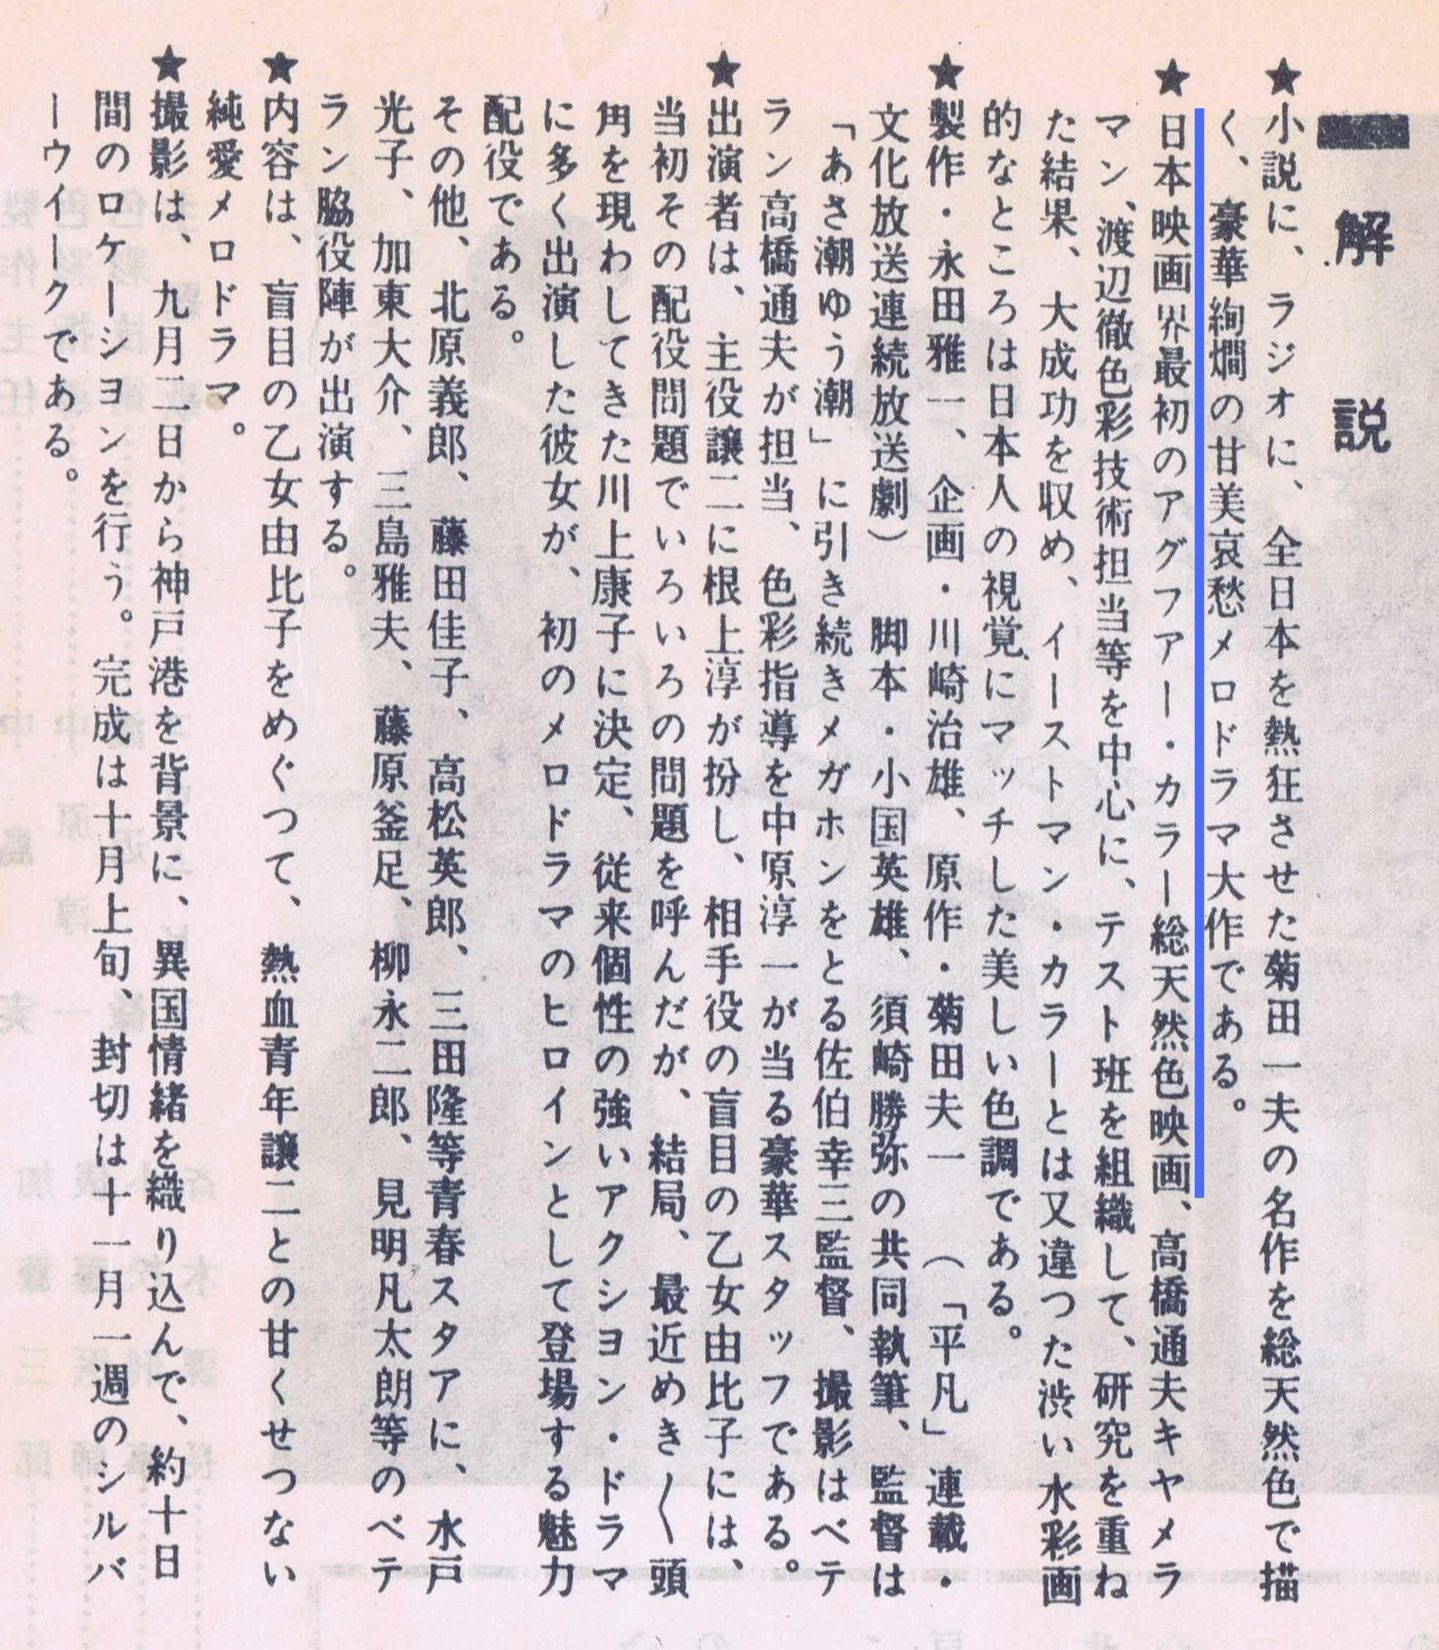 解説
★小説に、ラジオに、全日本を熱狂させた菊田一夫の名作を総天然色で描
く、豪華絢爛の甘美哀愁メロドラマ大作である。
★日本映画界最初のアグファー・カラー総天然色映画、高橋通夫キヤメラ
マン、渡辺徹色彩技術担当等を中心に、テスト班を組織して、研究を重ね
た結果、大成功を収め、イーストマン・カラーとは又違つた渋い水彩画
的なところは日本人の視覚にマッチした美しい色調である。
★製作・永田雅一、企画・川崎治雄、原作・菊田夫一（「平凡」連載・
文化放送連続放送劇）　脚本・小国英雄、須崎勝弥の共同執筆、監督は
「あさ潮ゆう潮」に引き続きメガホンをとる佐伯幸三監督、撮影はベテ
ラン高橋通夫が担当、色彩指導を中原淳一が当る豪華スタッフである。
★出演者は、主役譲二に根上淳が扮し、相手役の盲目の乙女由比子には、
当初その配役問題でいろいろの問題を呼んだが、結局、最近めき〱頭
角を現わしてきた川上康子に決定、従来個性の強いアクシヨン・ドラマ
に多く出演した彼女が、初のメロドラマのヒロインとして登場する魅力
配役である。
その他、北原義郎、藤田佳子、高松英郎、三田隆等青春スタアに、水戸
光子、加東大介、三島雅夫、藤原釜足、柳永二郎、見明凡太朗等のベテ
ラン脇役陣が出演する。
★内容は、盲目の乙女由比子をめぐつて、熱血青年譲二との甘くせつない
純愛メロドラマ。
★撮影は、九月二日から神戸港を背景に、異国情緒を織り込んで、約十日
間のロケーシヨンを行う。完成は十月上旬、封切は十一月一週のシルバ
ーウイークである。